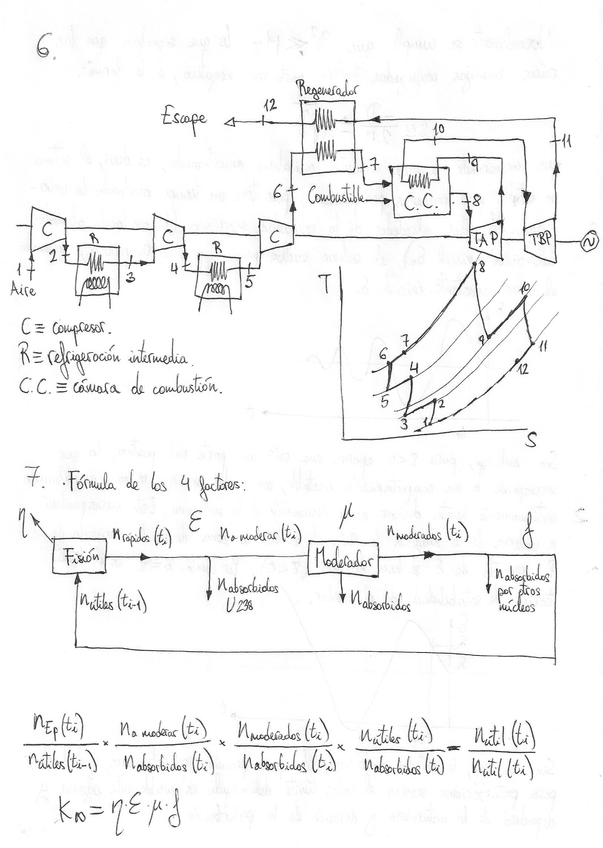 6.
Regenerador
Escape
12
10
11
7
9
6
Combustible
C.C.
8
C
C
C
TAP
TBP
R
R
2
3
4
5
1
Aire
T
8
10
7
6
9
11
4
12
5
2
3
1
S
C ≡ compresor.
R ≡ refrigeración intermedia.
C.C. ≡ cámara de combustión.
7. Fórmula de los 4 factores:
η
ε
μ
f
n rápidos (ti)
n a moderar (ti)
n moderados (ti)
Fisión
Moderador
n útiles (ti-1)
n absorbidos
U238
n absorbidos
n absorbidos
por otros
núcleos
nEp(ti)/n útiles(ti-1) × n a moderar (ti)/n absorbidos (ti) × n moderados (ti)/n absorbidos (ti) × n útiles (ti)/n absorbidos (ti) = n útil (ti)/n útil (ti)
K∞ = η·ε·μ·f